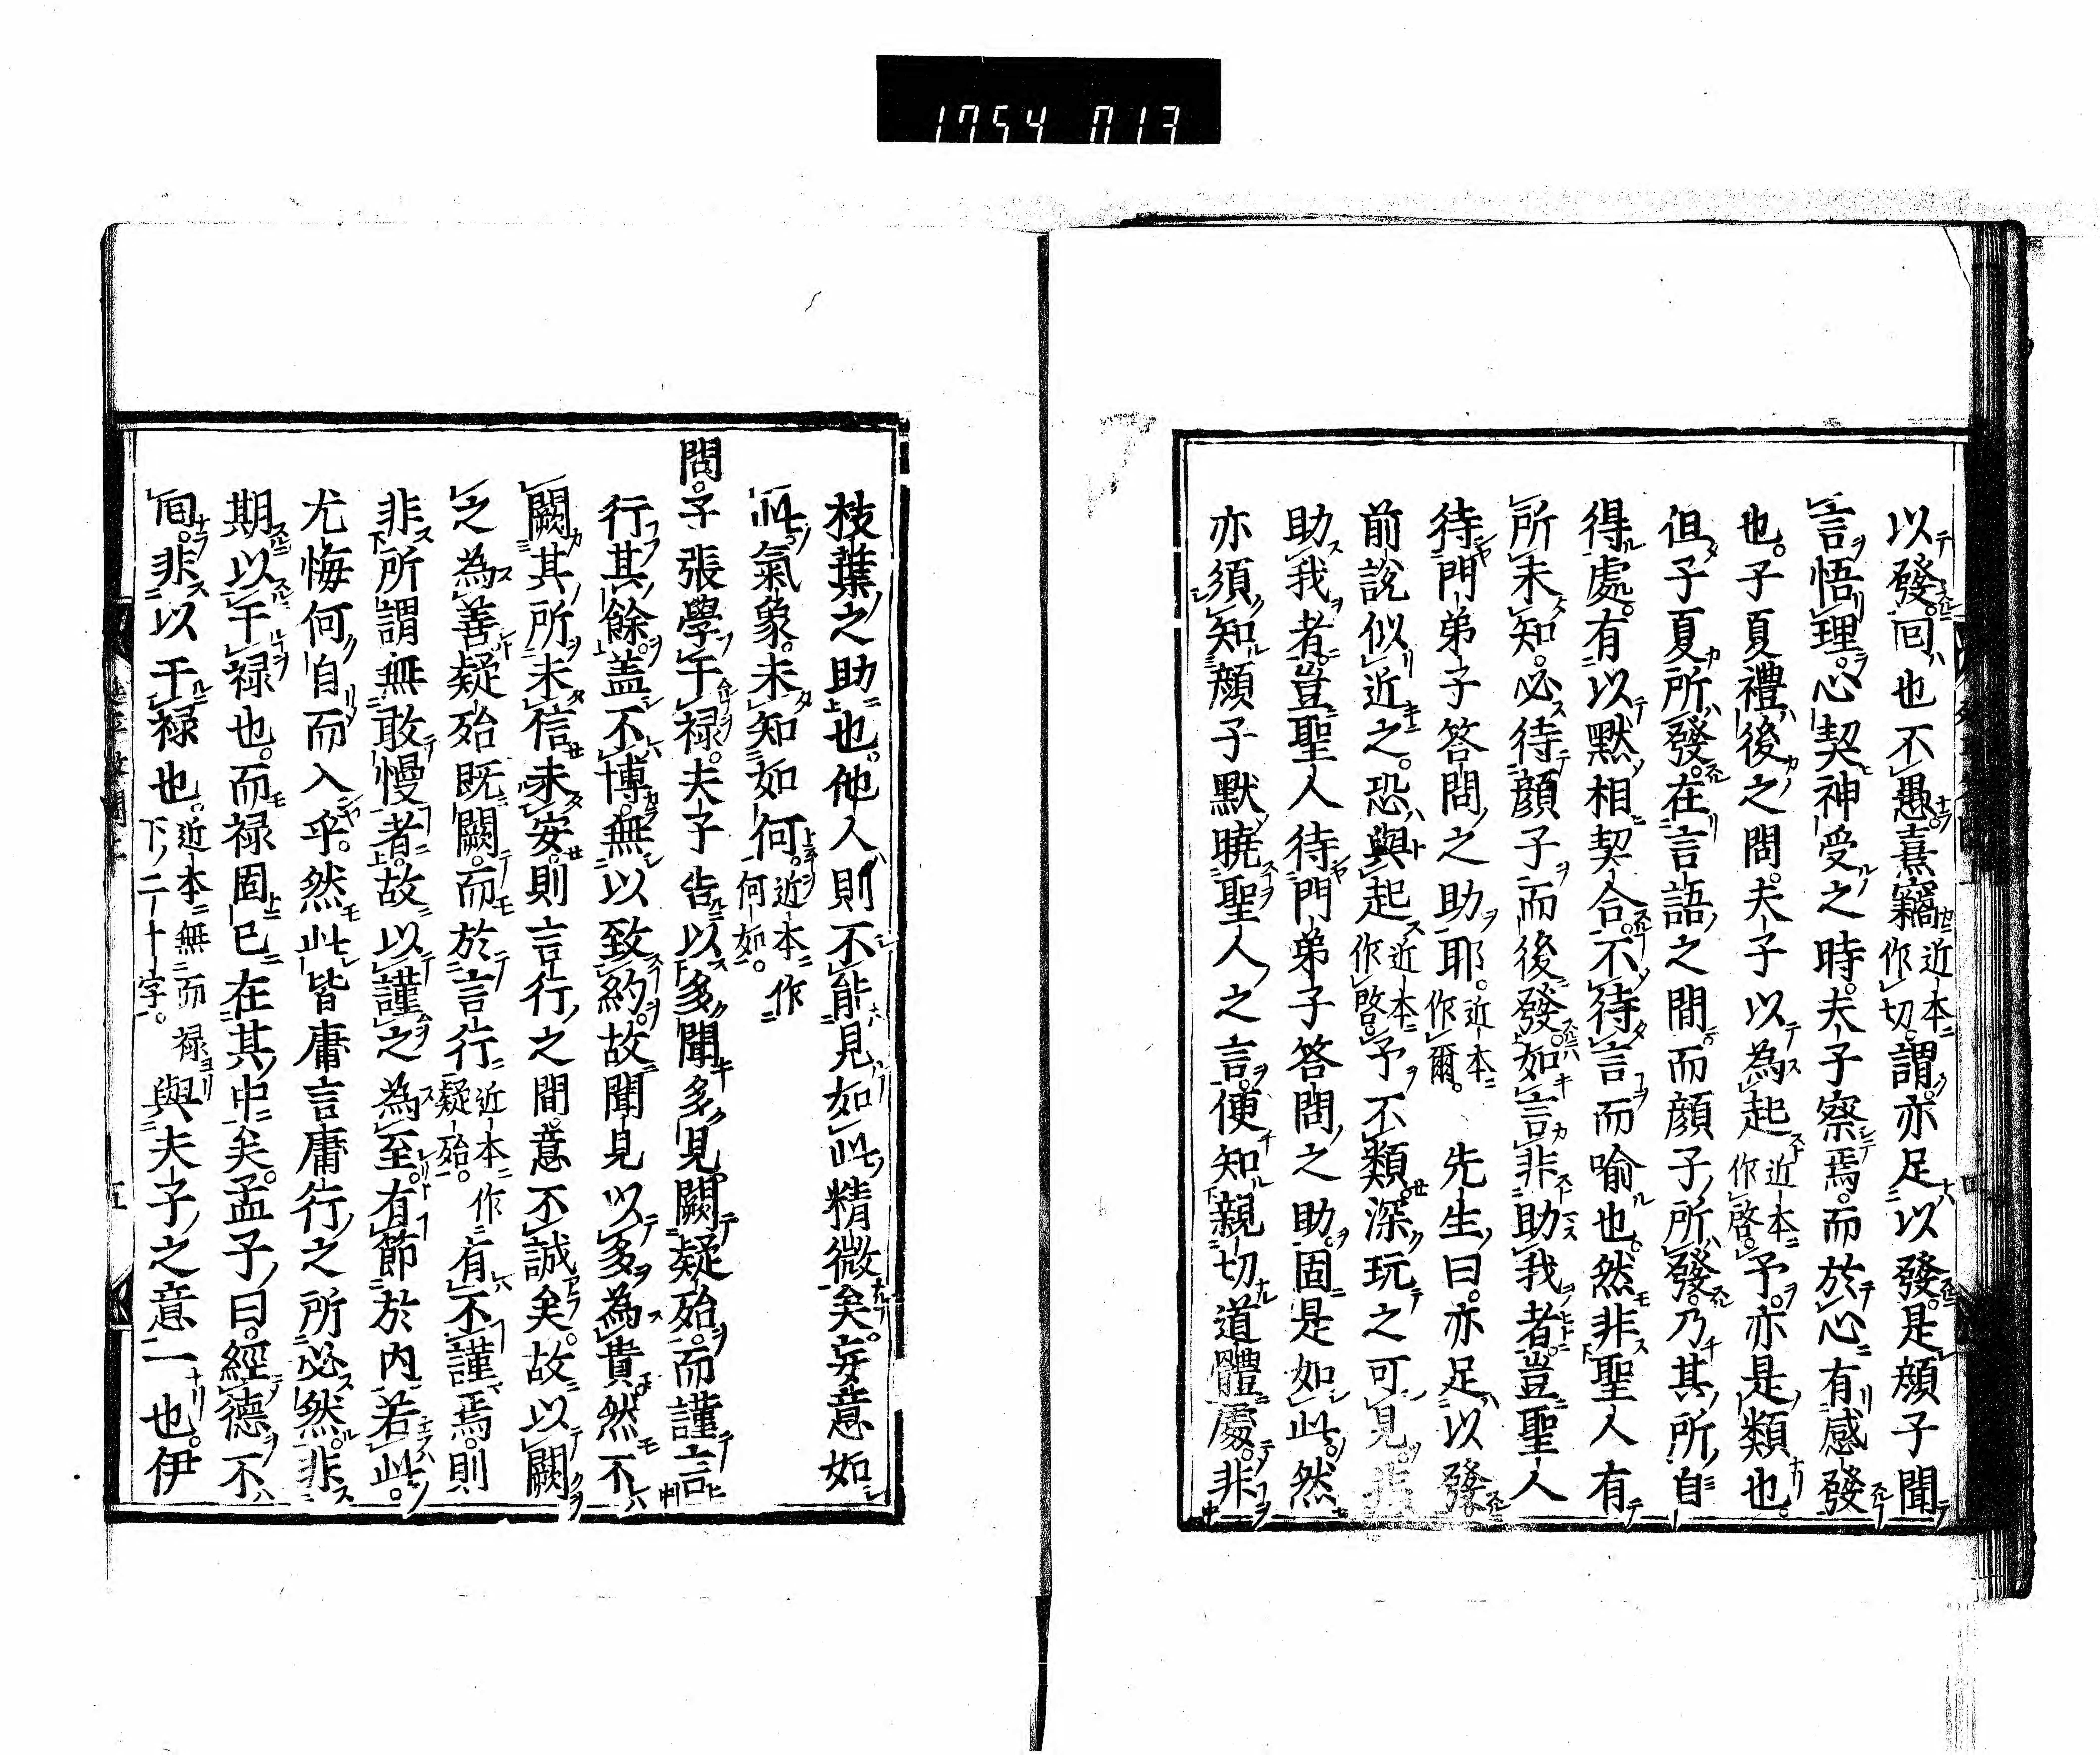 1754 013
以發。回也不愚。熹竊近本作切。謂。亦足以發。是顔子聞
言悟理。心契神受之時。夫子察焉。而於心有感發
也。子夏禮後之問。夫子以為起近本作啓。予。亦是類也。
但子夏所發。在言語之間。而顔子所發。乃其所自
得處。有以默相契合。不待言而喻也。然非聖人有
所未知。必待顔子而後發。如言非助我者。豈聖人
待門弟子答問之助耶。近本作爾。先生曰。亦足以發
前說似近之。恐與起近本作啓。予不類。深玩之可見。非
助我者。豈聖人待門弟子答問之助。固是如此。然
亦須知顔子默曉聖人之言。便知親切道體處。非
枝葉之助也。他人則不能見如此精微矣。妄意如
此。氣象。未知如何。近本作何如。
問。子張學干禄。夫子告以多聞多見闕疑殆。而謹言
行其餘。盖不博。無以致約。故聞見以多為貴。然不
闕其所未信未安。則言行之間。意不誠矣。故以闕
之為善。疑殆既闕。而於言行近本作疑殆。有不謹焉。則
非所謂無敢慢者。故以謹之為至。有節於内。若此。
尤悔何自而入乎。然此皆庸言庸行之所必然。非
期以干禄也。而禄固已在其中矣。孟子曰。經德不
回。非以干禄也。近本無而禄下二十字。與夫子之意一也。伊
五